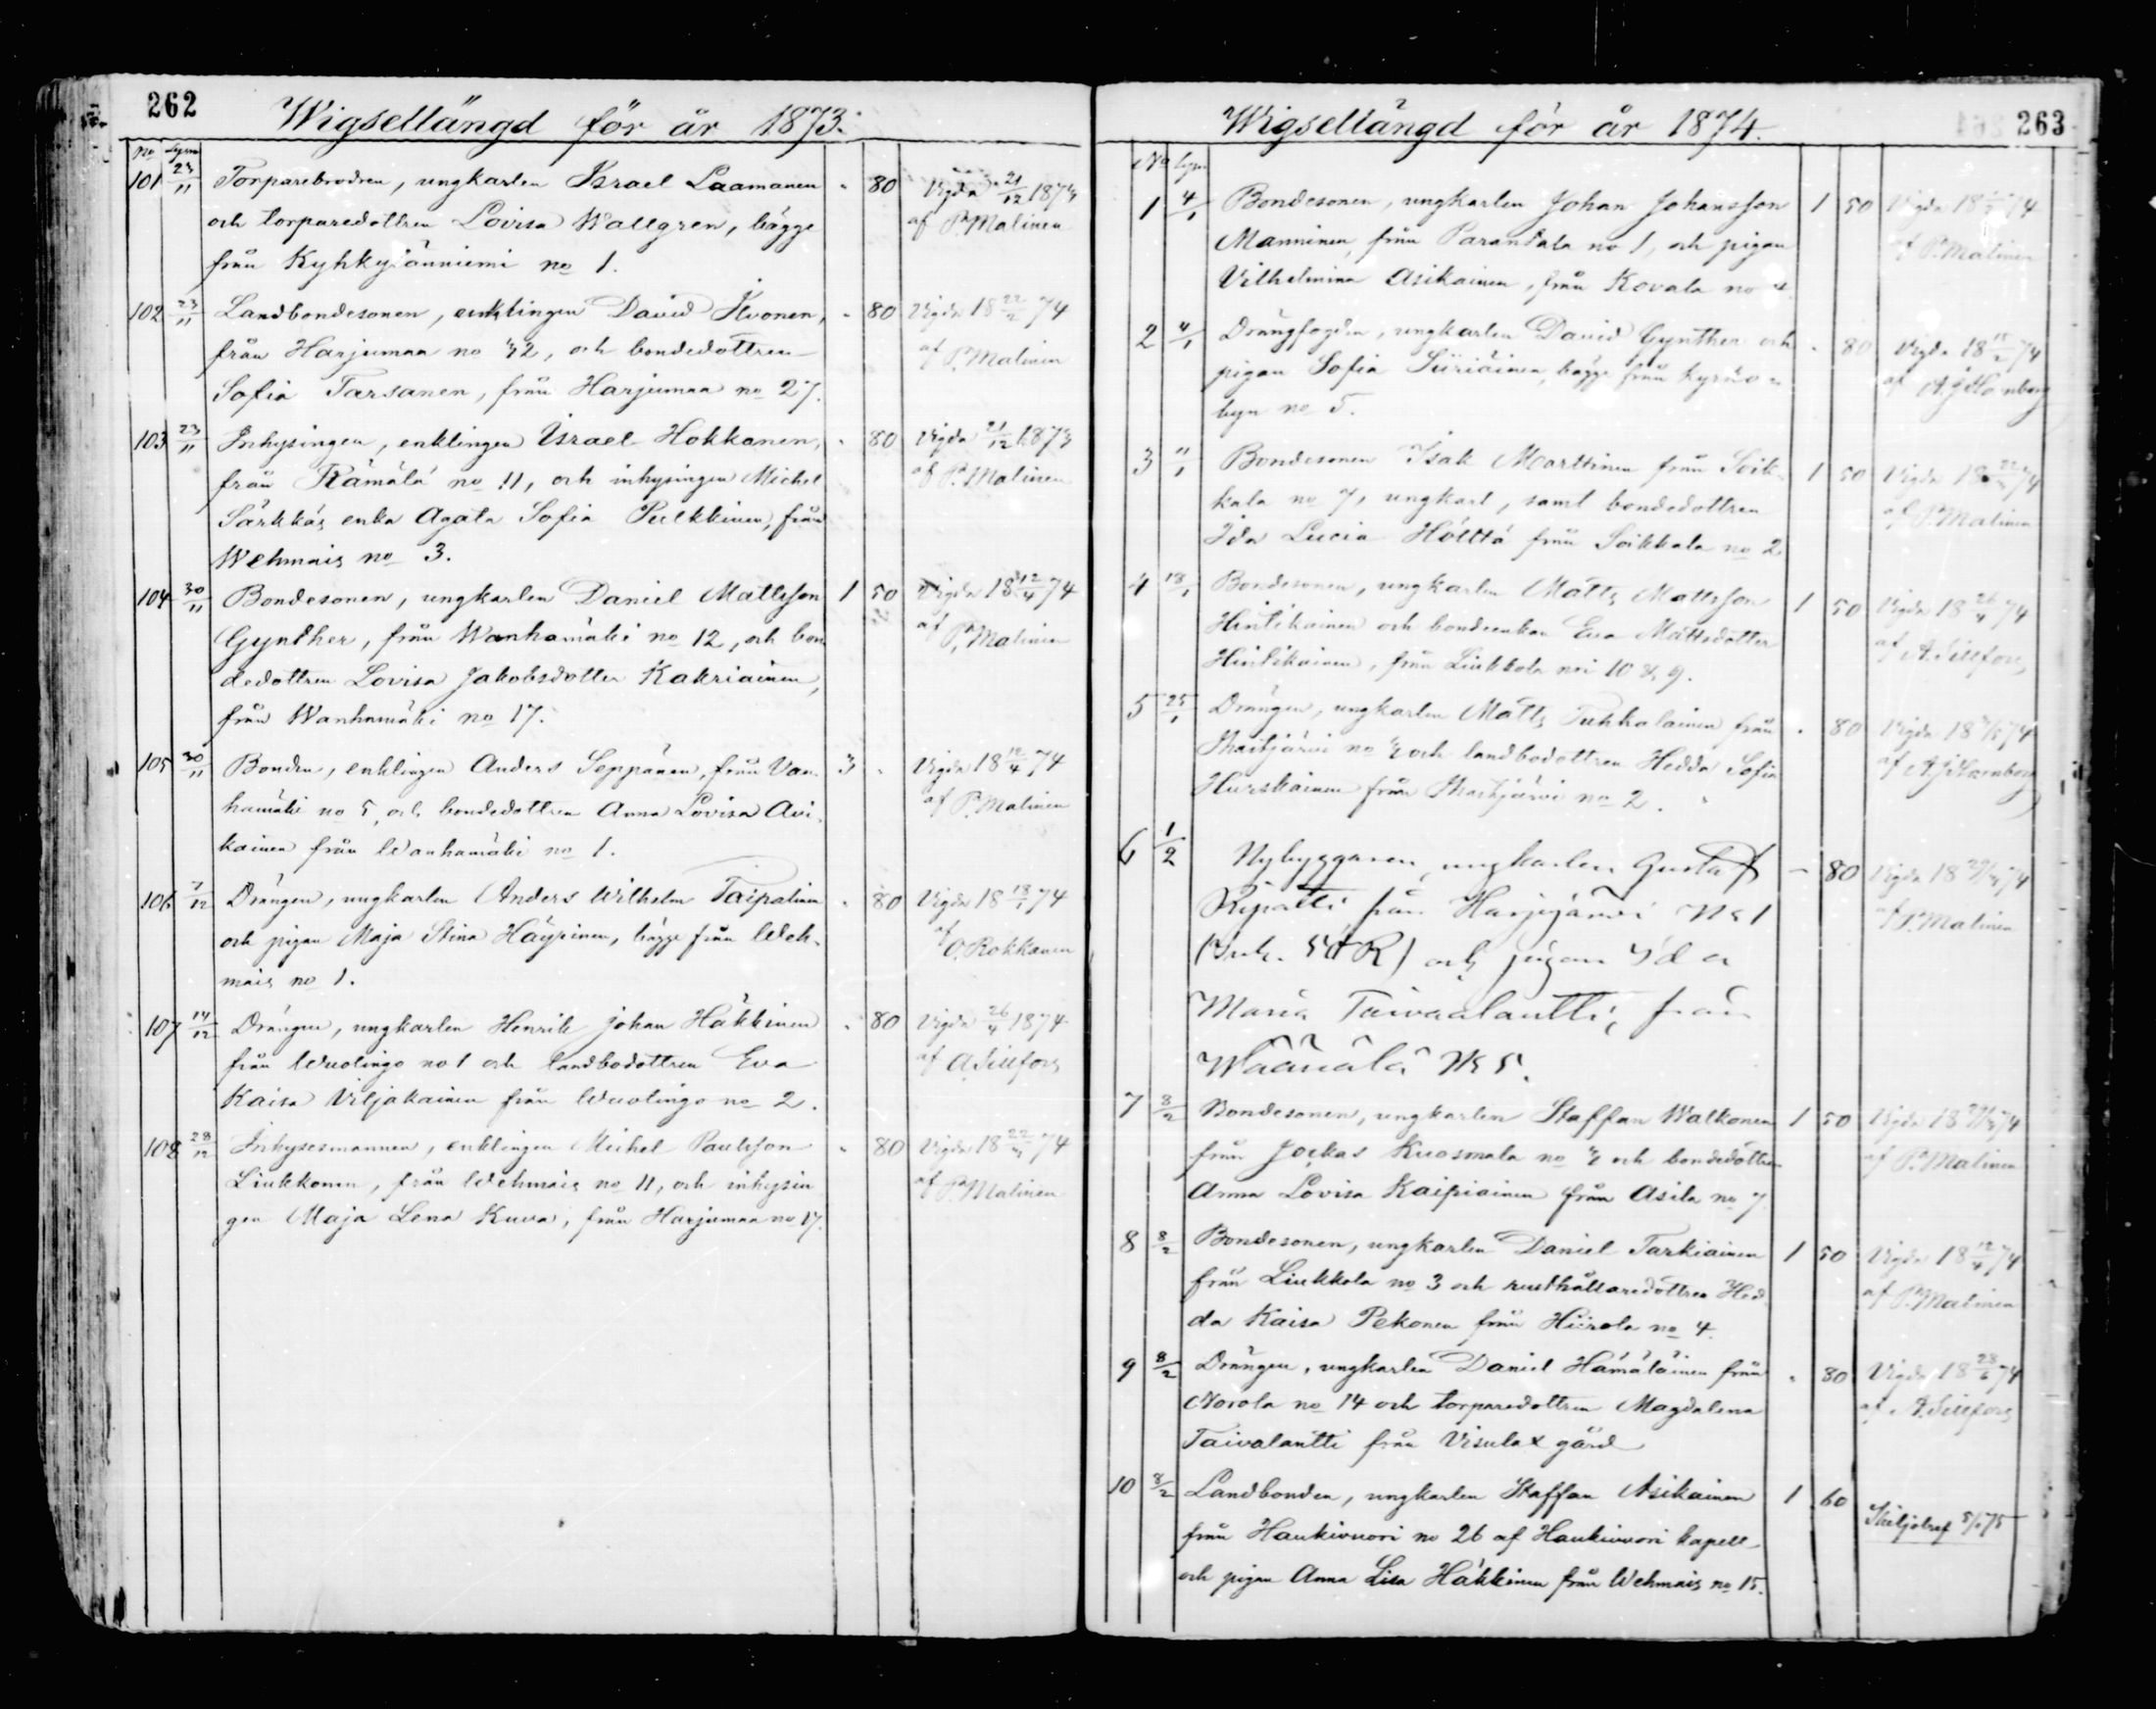 262
Wigsellängd för år 1873.
No Lysn
101 23/11 Torparebrodren, ungkarlen Israel Laamanen " 80 Vigda 21/12 1873
och torparedottren Lovisa Wallgren, bägge af P. Malinen
från Kyhkylänniemi no 1.
102 23/11 Landbondesonen, enklingen David Ikonen, " 80 Vigda 18 22/2 74
från Harjumaa no 32, och bondedottren af P. Malinen
Sofia Tarsanen, från Harjumaa no 27.
103 23/11 Inhysingen, enklingen Israel Hokkanen, " 80 Vigda 21/12 1873
från Rämälä no 11, och inhysingen Michel af P. Malinen
Särkkäs enka Agata Sofia Pulkkinen, från
Wehmais no 3.
104 30/11 Bondesonen, ungkarlen Daniel Mattsson 1 50 Vigda 18 12/4 74
Gynther, från Wanhamäki no 12, och bon af P. Malinen
dedottren Lovisa Jakobsdotter Kakriainen,
från Wanhamäki no 17.
105 30/11 Bonden, enklingen Anders Seppänen, från Van 3 " Vigda 18 12/4 74
hamäki no 5, och bondedottren Anna Lovisa Avi af P. Malinen
kainen från Wanhamäki no 1.
106 7/12 Drängen, ungkarlen Anders Wilhelm Taipalinen " 80 Vigda 18 18/1 74
och pigan Maja Stina Häyrinen, bägge från Weh- af O. Rokkanen
mais no 1.
107 14/12 Drängen, ungkarlen Henrik Johan Häkkinen " 80 Vigda 26/4 1874
från Wuolingo no 1 och landbodottren Eva af A. Sillfors
Kaisa Viljakainen från Wuolingo no 2.
108 28/12 Inhysesmannen, enklingen Michel Paulsson " 80 Vigda 18 22/3 74
Liukkonen, från Wehmais no 11, och inhysin af P. Malinen
gen Maja Lena Kuva, från Harjumaa no 17.
263
Wigsellängd för år 1874.
No Lysn
1 4/1 Bondesonen, ungkarlen Johan Johansson 1 50 Vigda 18 74
Manninen, från Parantala no 1, och pigan af P. Malinen
Vilhelmina Asikainen, från Kovala no 4.
2 4/1 Drängfogden, ungkarlen David Gynther och " 80 Vigda 18 15/2 74
pigan Sofia Siiriäinen, bägge från Kyrko- af A J Hornborg
byn no 5.
3 11/1 Bondesonen Isak Marttinen från Soik- 1 50 Vigda 18 22/2 74
kala no 7, ungkarl, samt bondedottren af P. Malinen
Ida Lucia Hölttä från Soikkala no 2
4 18/1 Bondesonen, ungkarlen Matts Mattsson 1 50 Vigda 18 26/4 74
Hintikainen och bondeenkan Eva Mattsdotter af A. Sillfors
Hintikainen, från Liukkola noi 10 & 9.
5 25/1 Drängen, ungkarlen Matts Tukkalainen från " 80 Vigda 18 74
no 2 och landbodottren Hedda Sofia af A J Hornborg
Hurskainen från no 2.
6 1/2 Nybyggaren, ungkarlen Gustaf - 80 Vigda 18 74
Ripatti från Harjujärvi No 1 af P. Malinen
och pigan Ida
Maria Taivaalantti, från
Wäänälä No 5.
7 8/2 Bondesonen, ungkarlen Staffan Walkonen 1 50 Vigda 18 74
från Jockas Kuosmala no 2 och bondedottren af P. Malinen
Anna Lovisa Kaipiainen från Asila no 7
8 8/2 Bondesonen, ungkarlen Daniel Tarkiainen 1 50 Vigda 18 12/4 74
från Liukkola no 3 och rusthållaredottren Hed af P. Malinen
da Kaisa Pekonen från Hiirola no 4.
9 8/2 Drängen, ungkarlen Daniel Hämäläinen från " 80 Vigda 18 28/6 74
Norola no 14 och torparedottren Magdalena af A. Sillfors
Taivalantti från Visulax gård
10 8/2 Landbonden, ungkarlen Staffan Asikainen 1 60
från Haukivuori no 26 af Haukivuori kapell Skiljobref 5/1 75
och pigan Anna Lisa Häkkinen från Wehmais no 15.